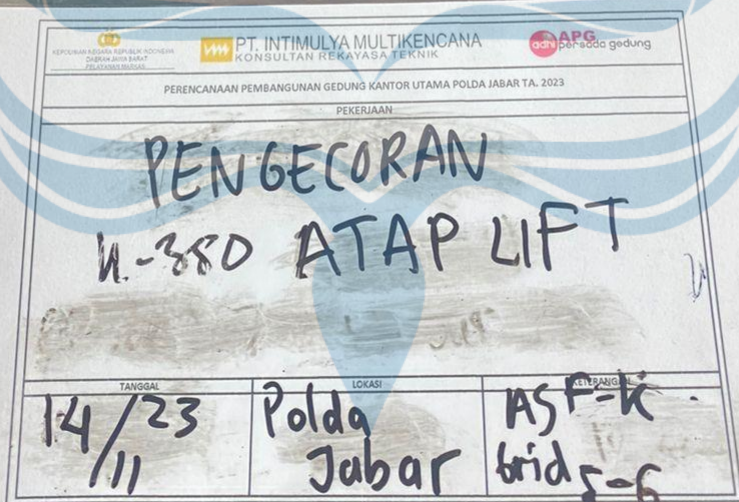 KEPOLISIAN NEGARA REPUBLIK INDONESIA
DAERAH JAWA BARAT
PELAYANAN MARKAS
PT. INTIMULYA MULTIKENCANA
KONSULTAN REKAYASA TEKNIK
adhi APG
persada gedung
PERENCANAAN PEMBANGUNAN GEDUNG KANTOR UTAMA POLDA JABAR TA. 2023
PEKERJAAN
PENGECORAN
K-350 ATAP LIFT
TANGGAL
14/11/23
LOKASI
Polda
Jabar
KETERANGAN
AS F-K
Grid 5-6